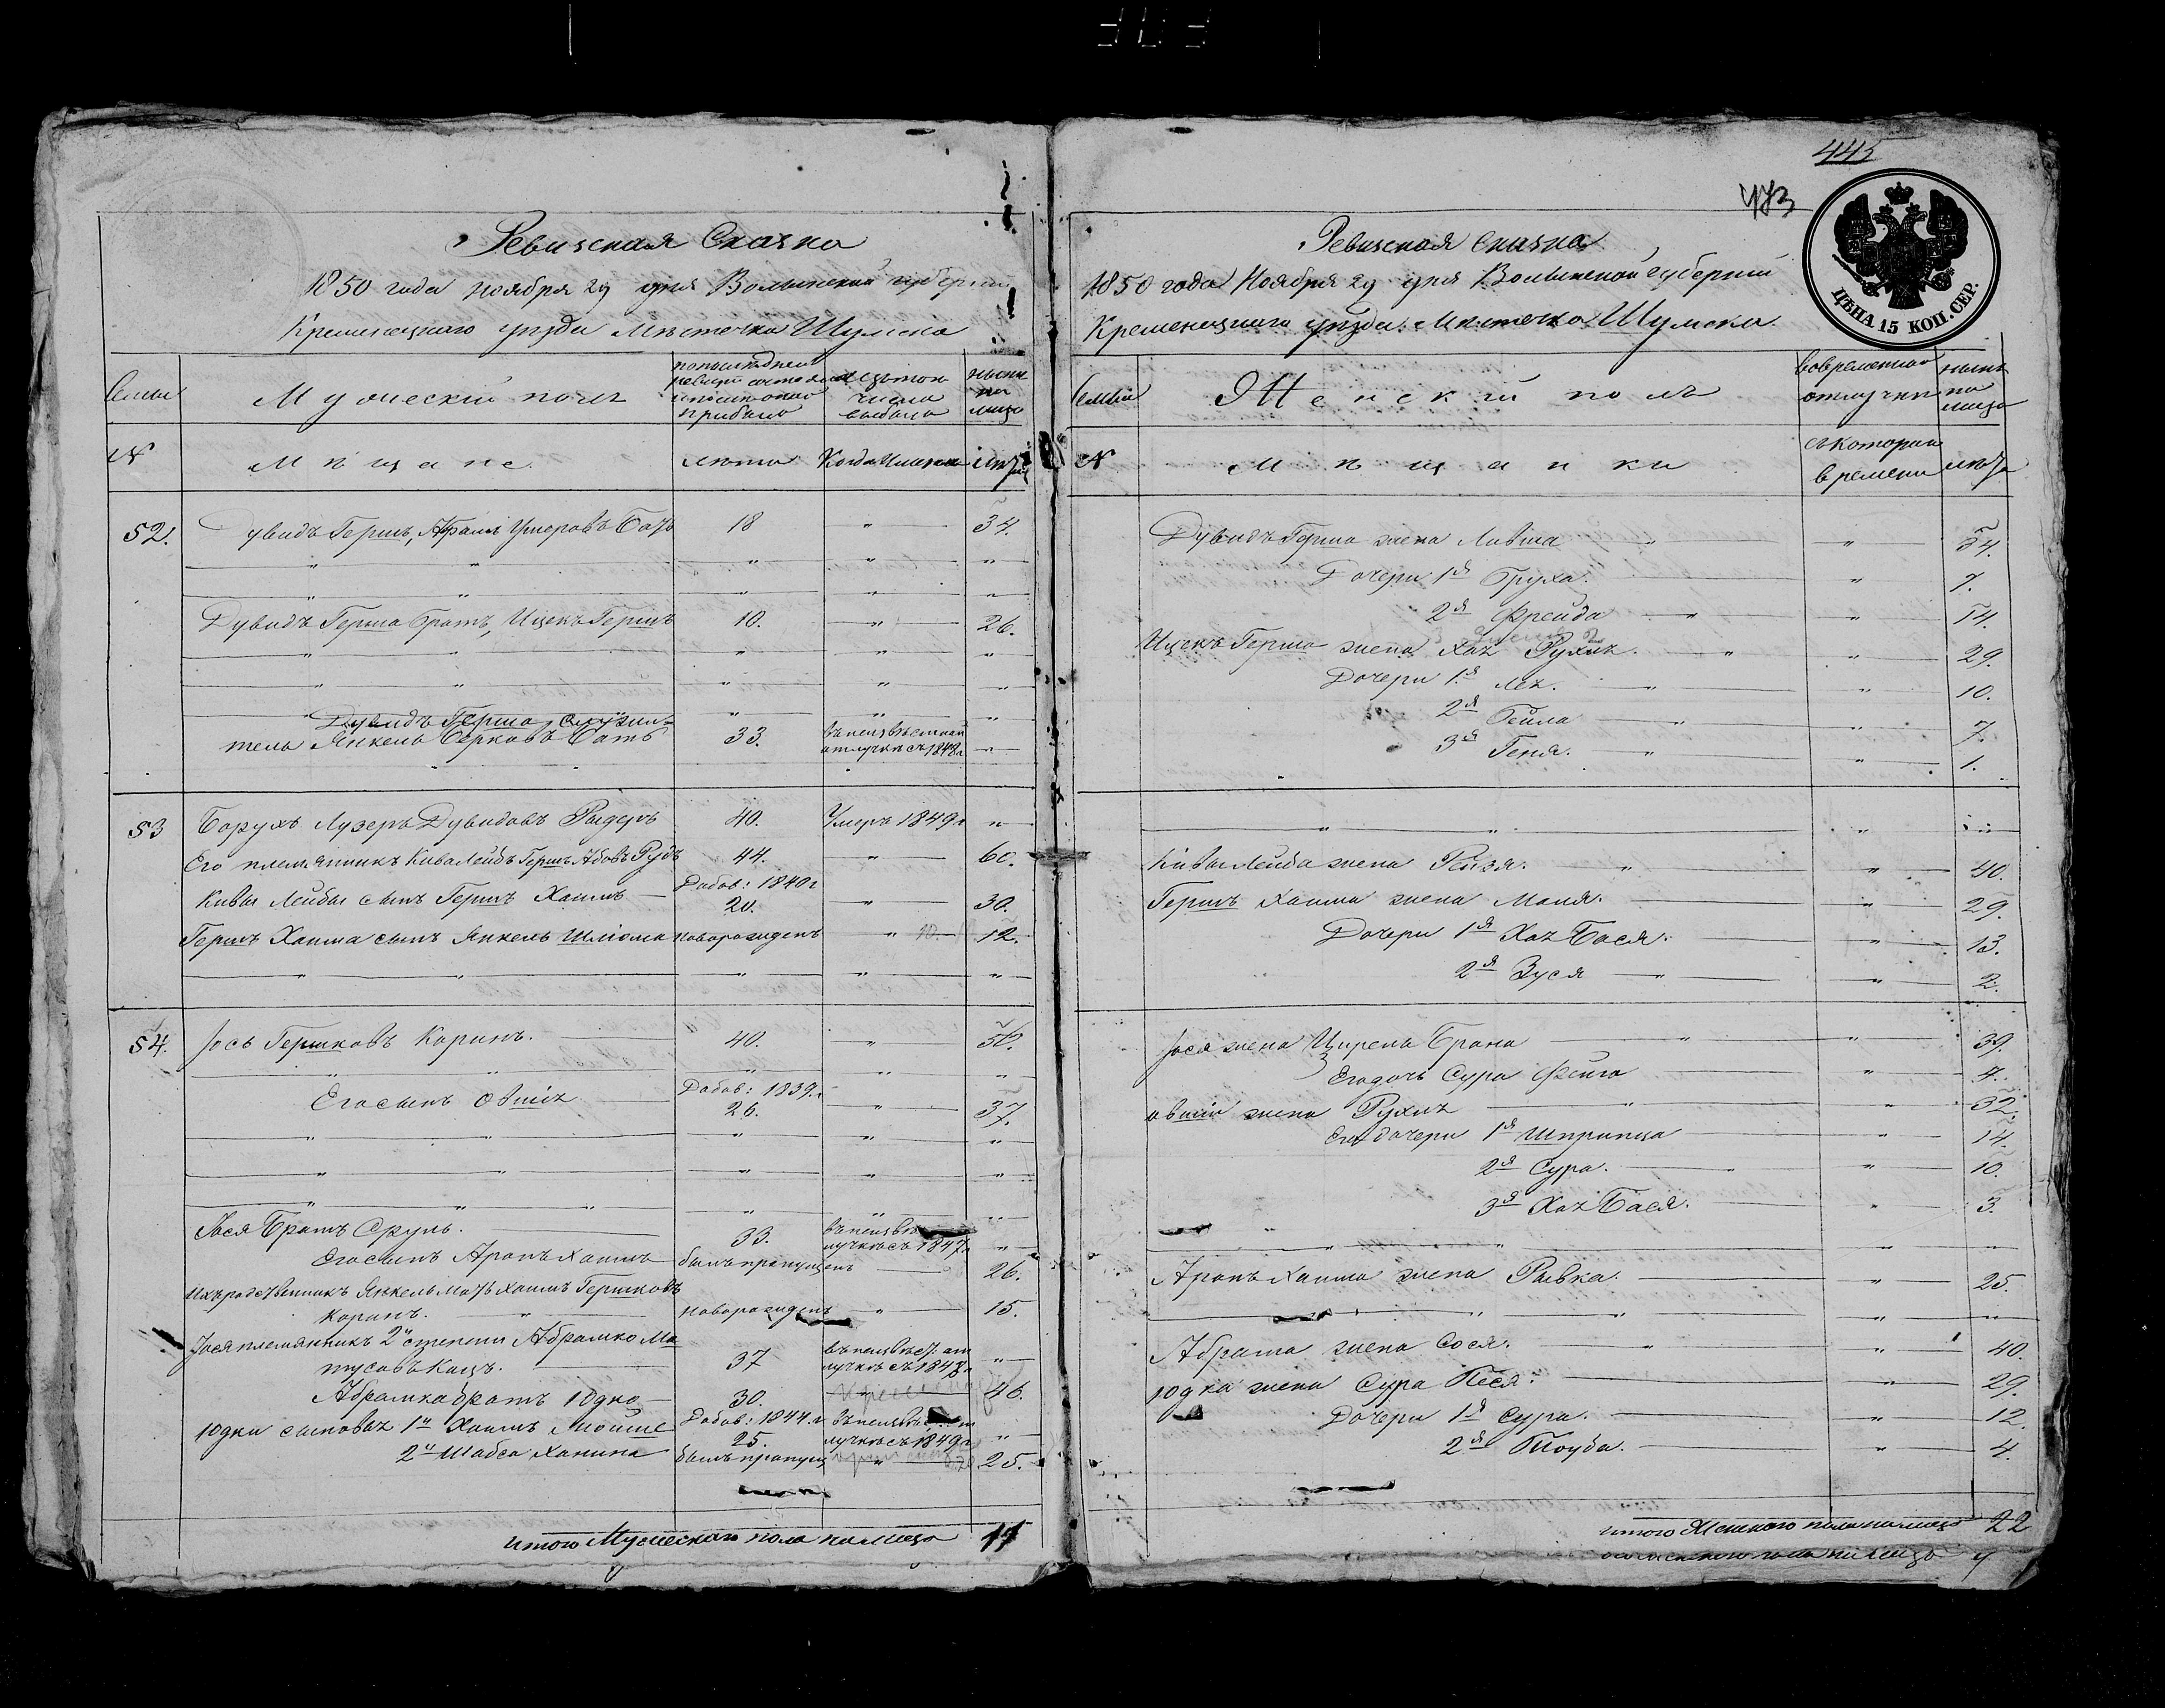 Ревизская Сказка
1850 года ноября 29 дня Волынской губернии
Кременецкого уезда Местечка Шумска
Семьи
Мужеский полъ
N
Мѣщане
лѣта
Когда Именно
лѣта
52.
Дувидъ Гершъ, Абрамъ Умеровъ
18
34.
Дувидъ Герша братъ, Ицекъ Гершъ
10.
26.
Дувидъ Герша служи-
тель Янкель Берковъ
33.
отлучкѣ съ 1848 г
53
Борухъ Лузеръ Дувидовъ Рыдеръ
40.
Умеръ 1849 г
Его племянникъ Кива Лейбъ Гершъ
44.
60.
Кивы Лейбы сынъ Гершъ Хаимъ
Добав: 1840 г
20.
30.
Гершъ Хаима сынъ Янкель Шліома
новорожденъ
12.
54.
Іось Гершковъ Коринъ.
40.
56.
Его сынъ Овшіа
Добав: 1839 г
26.
37.
Іося Братъ Сруль.
33.
лучкѣ съ 1847 г
Его сынъ Аронъ Хаимъ
былъ пропущенъ
26.
Ихъ родственникъ Янкель Хаимъ Гершковъ
Коринъ.
новорожденъ
15.
Іося племянникъ 2й степени Абрамко Ма
тусовъ Кацъ.
37
лучкѣ съ 1848 г
Абрамка братъ Юдко
30.
46.
Юдки сыновья 1й Хаимъ Мойше
Добав: 1844 г
25.
лучкѣ съ 1849 г
2й Шабса Ханина
былъ пропущ
25.
итого Мужескаго пола на лицо 11
445
473
ЦѢНА 15 КОП. СЕР.
Ревизская Сказка
1850 года Ноября 29 дня Волынской губерніи
Кременецкаго уѣзда. Мѣстечка Шумска.
Семьи
Женскій полъ
во временной
отлучкѣ
нынѣ
на
лицо
N
Мѣщанки
съ котораго
времени
лѣта
Дувидъ Герша жена Ловша
34.
Дочери 1я Бруха.
7.
2я Фрейда
14.
Ицекъ Герша жена Хая Рухля.
29.
Дочери 1я Лея.
10.
2я Бейла
7.
3я Геня.
1.
Кивы Лейба жена Рейзя.
40.
Гершъ Хаима жена Маня.
29.
Дочери 1я Хая Бася.
13.
2я Зуся
2.
Іося жена Цирель Брана
39.
Его дочь Сура Фейга
4.
Овшіи жена Рухля
32.
Его дочери 1я Шпринца
14.
2я Сура.
10.
3я Хая Бася.
3.
Аронъ Хаима жена Рывка.
25.
Абрама жена Сося.
40.
Юдка жена Сура Песя.
29.
Дочери 1я Сура.
12
2я Тоуба.
4.
итого Женского пола на лицо 22